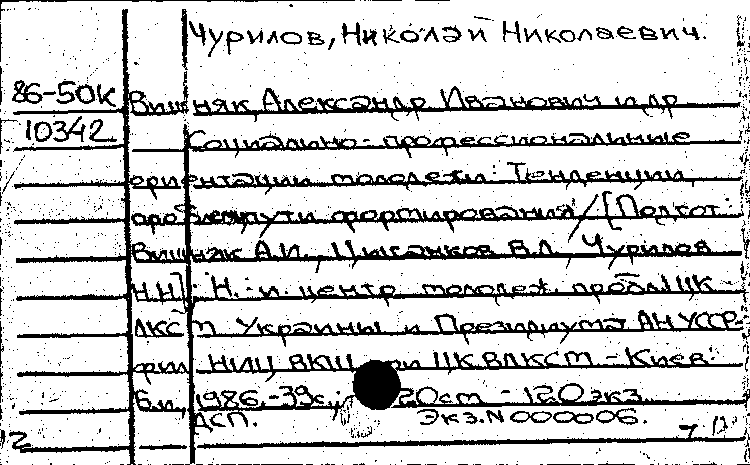 Чурилов, Николай Николаевич.
86-50К Вишняк, Александр Иванович и др
10342 Социально-профессиональные
ориентации молодежи: Тенденции,
пробл., пути формирования / [Подгот.
Вишняк А.И., Цыганков В.Л., Чурилов
Н.Н.]; Н.-и. центр молодеж. пробл. ЦК
ЛКСМ Украины и Президиума АН УССР-
фил. НИЦ ВКШ при ЦК ВЛКСМ. - Киев:
Б.и., 1986.-39с.; 20см - 120 экз.
ДСП. Экз. N 000006.